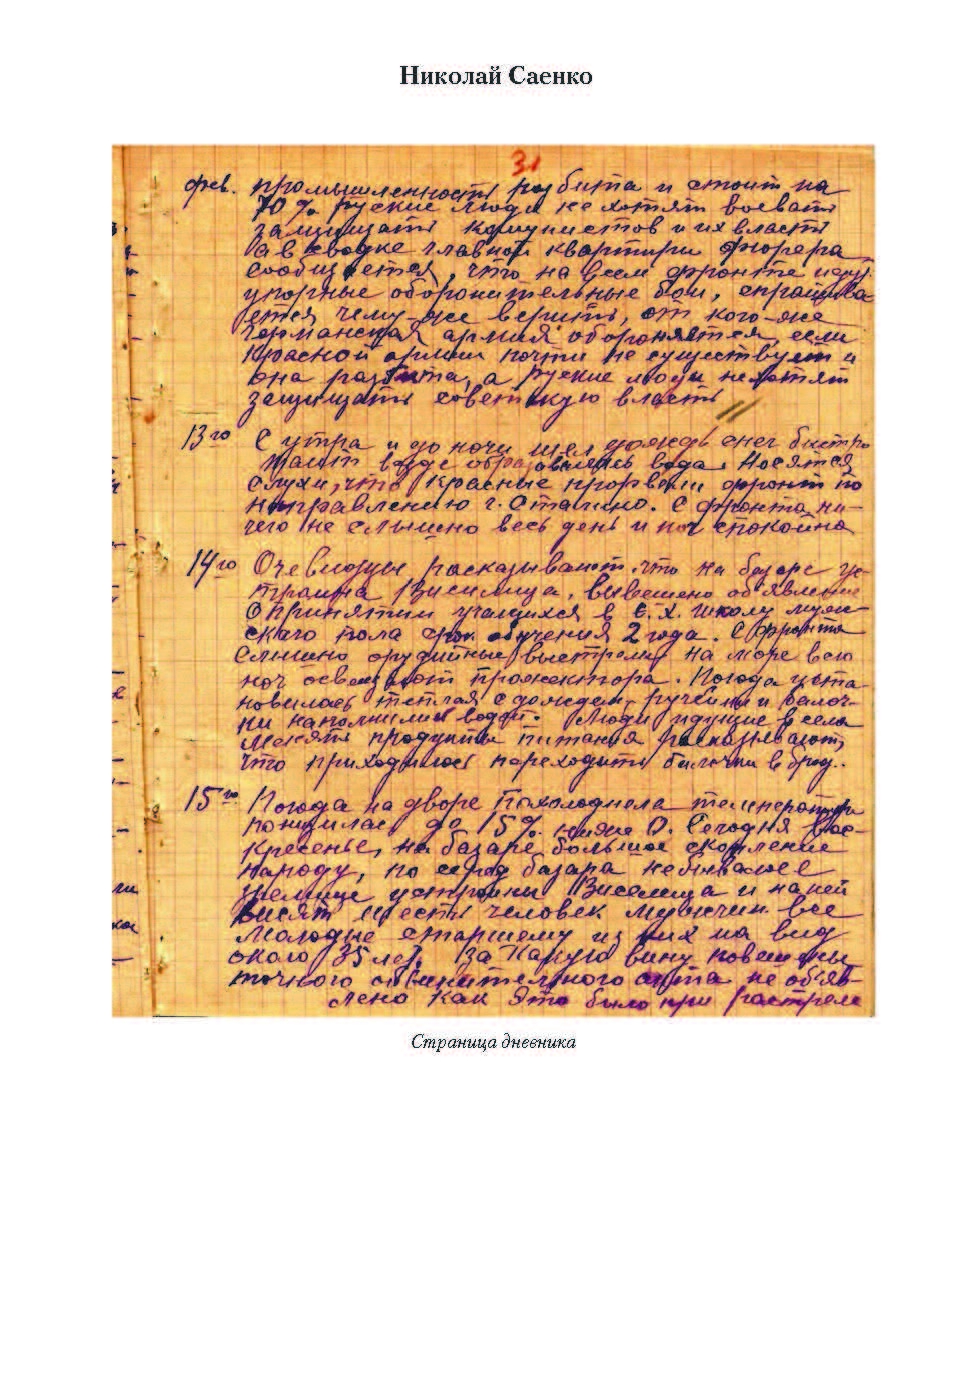 Николай Саенко
31
фев. промышленность разбита и стоит на
70% руские люди не хотят воевать
защищать комунистов и их власть
а в сводке главной квартири фюрера
сообщается, что на всем фронте идут
упорные оборонительные бои, спрашива
ется чему-же верить, от кого-же
германская армия обороняется, если
Красной армии почти не существует и
она разбита, а руские люди нехотят
защищать советскую власть
13го С утра и до ночи шел дождь снег быстро
таит везде образовалась вода. Носятся
слухи, что красные прорвали фронт по
направлению г. Сталино. С фронта ни-
чего не слышно весь день и ноч спокойно
14го Очевидцы расказывают что на базаре ус-
троина Висилица, вывешено об'явление
о принятии учащихся в с.х. школу муж-
ского пола срок обучения 2 года. С фронта
слышно орудийные выстрелы на море всю
ноч освещают прожектора. Погода уста
новилась теплая с дождем, ручейки и балоч-
ки наполнились водой. Люди идущие в села
менять продукты питания расказывают,
что приходилось переходить балочки в брод.
15го Погода на дворе похолоднела температура
понизилас до 15% ниже 0. Сегодня вос-
кресенье, на базаре большое скопление
народу, по серед базара небывалое
зрелище устроина Висилица и на ней
висят шесть человек мужчин все
молодые старшему из них на вид
около 35 лет. За Какую вину повешены
точного обвинительного акта не об'яв-
лено как это было при растреле
Страница дневника